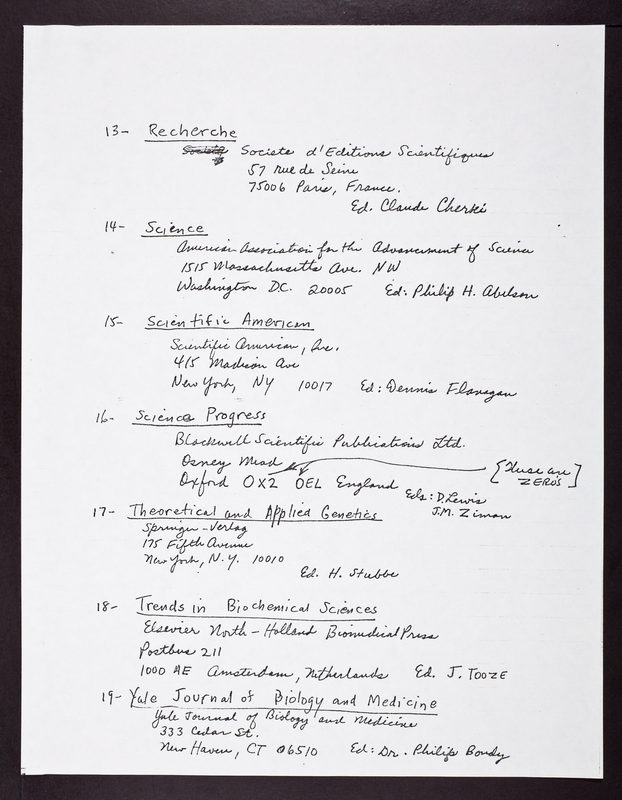 13- Recherche
Societe d'Editions Scientifiques
57 rue de Seine
75006 Paris, France.
Ed. Claude Cherki
14- Science
American Association for the Advancement of Science
1515 Massachusetts Ave. NW
Washington DC. 20005 Ed: Philip H. Abelson
15- Scientific American
Scientific American, Inc.
415 Madison Ave
New York, NY 10017 Ed: Dennis Flanagan
16- Science Progress
Blackwell Scientific Publications Ltd.
Osney Mead
[These are ZEROS]
Oxford OX2 OEL England Eds: D. Lewis
J.M. Ziman
17- Theoretical and Applied Genetics
Springer-Verlag
175 Fifth Avenue
New York, N.Y. 10010
Ed. H. Stubbe
18- Trends in Biochemical Sciences
Elsevier North-Holland Biomedical Press
Postbus 211
1000 AE Amsterdam, Netherlands Ed. J. TOOZE
19- Yale Journal of Biology and Medicine
Yale Journal of Biology and Medicine
333 Cedar St.
New Haven, CT 06510 Ed: Dr. Philip Bondy